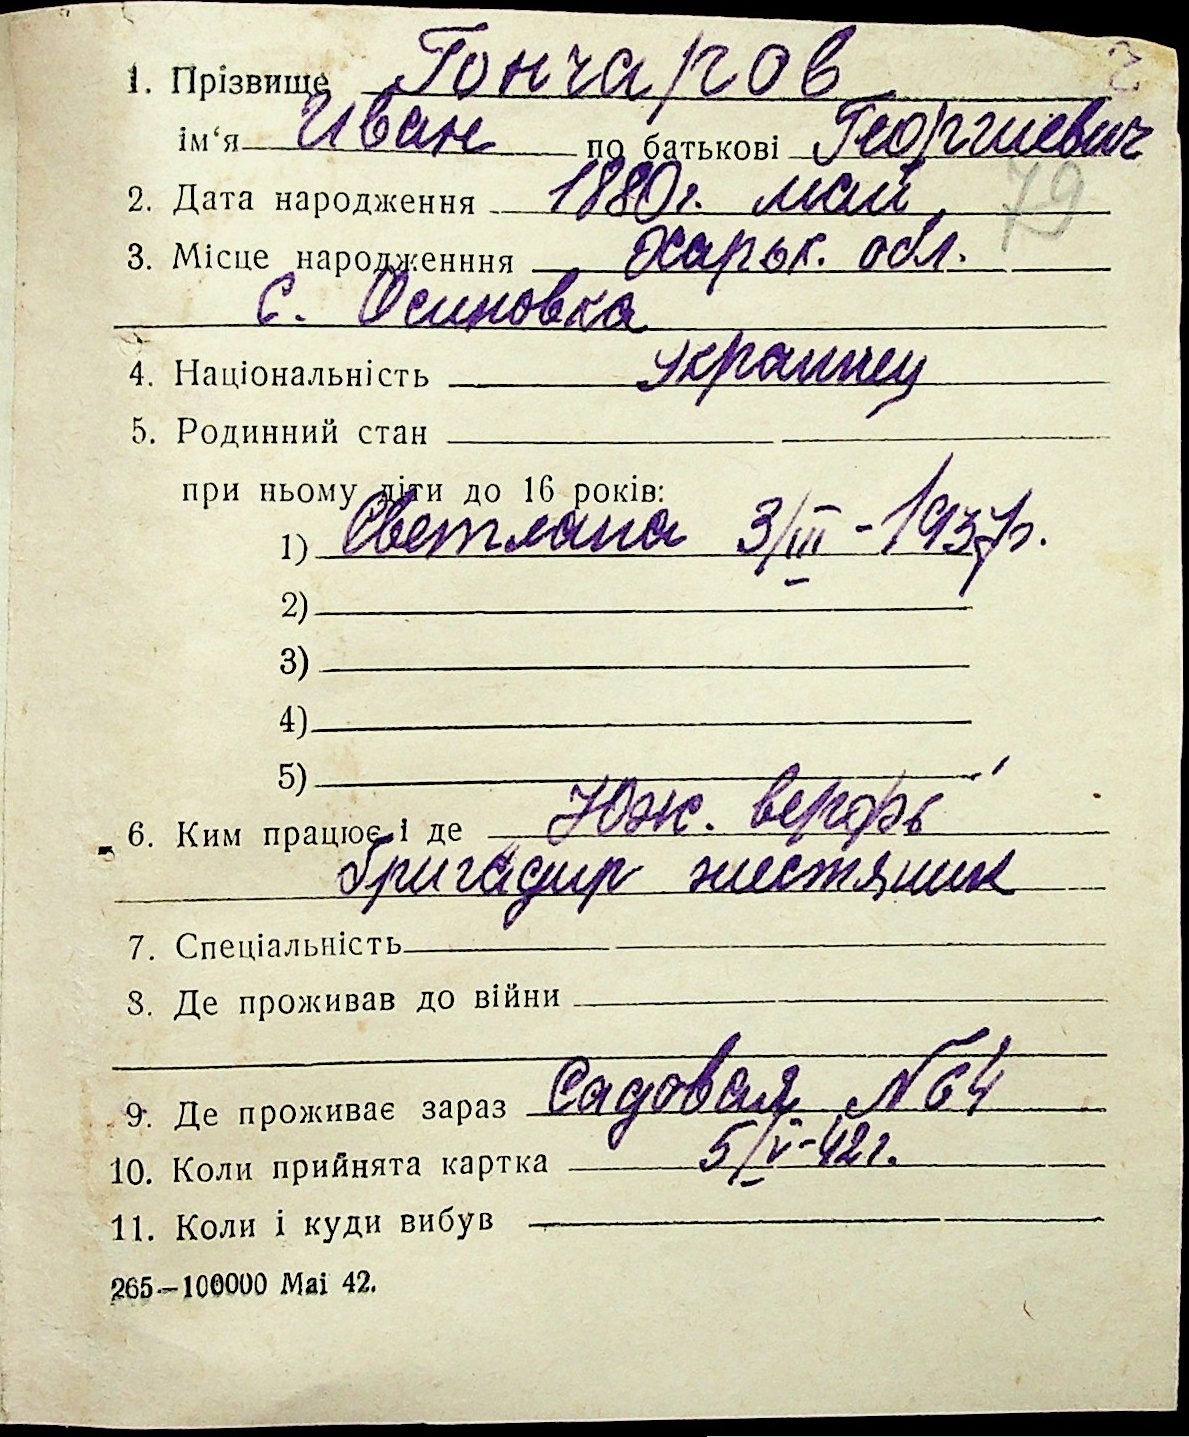 1. Прізвище Гончаров
ім‘я Иван по батькові Георгиевич
2. Дата народження 1880г. май
79
3. Місце народженння Харьк. обл.
с. Осиновка
4. Національність украинец
5. Родинний стан
при ньому діти до 16 років:
1) Светлана 3/III - 1937г.
2)
3)
4)
5)
6. Ким працює і де Юж. верфь
бригадир жестяник
7. Спеціальність
8. Де проживав до війни
9. Де проживає зараз Садовая №64
10. Коли прийнята картка 5/V-42г.
11. Коли і куди вибув
265—100000 Mai 42.